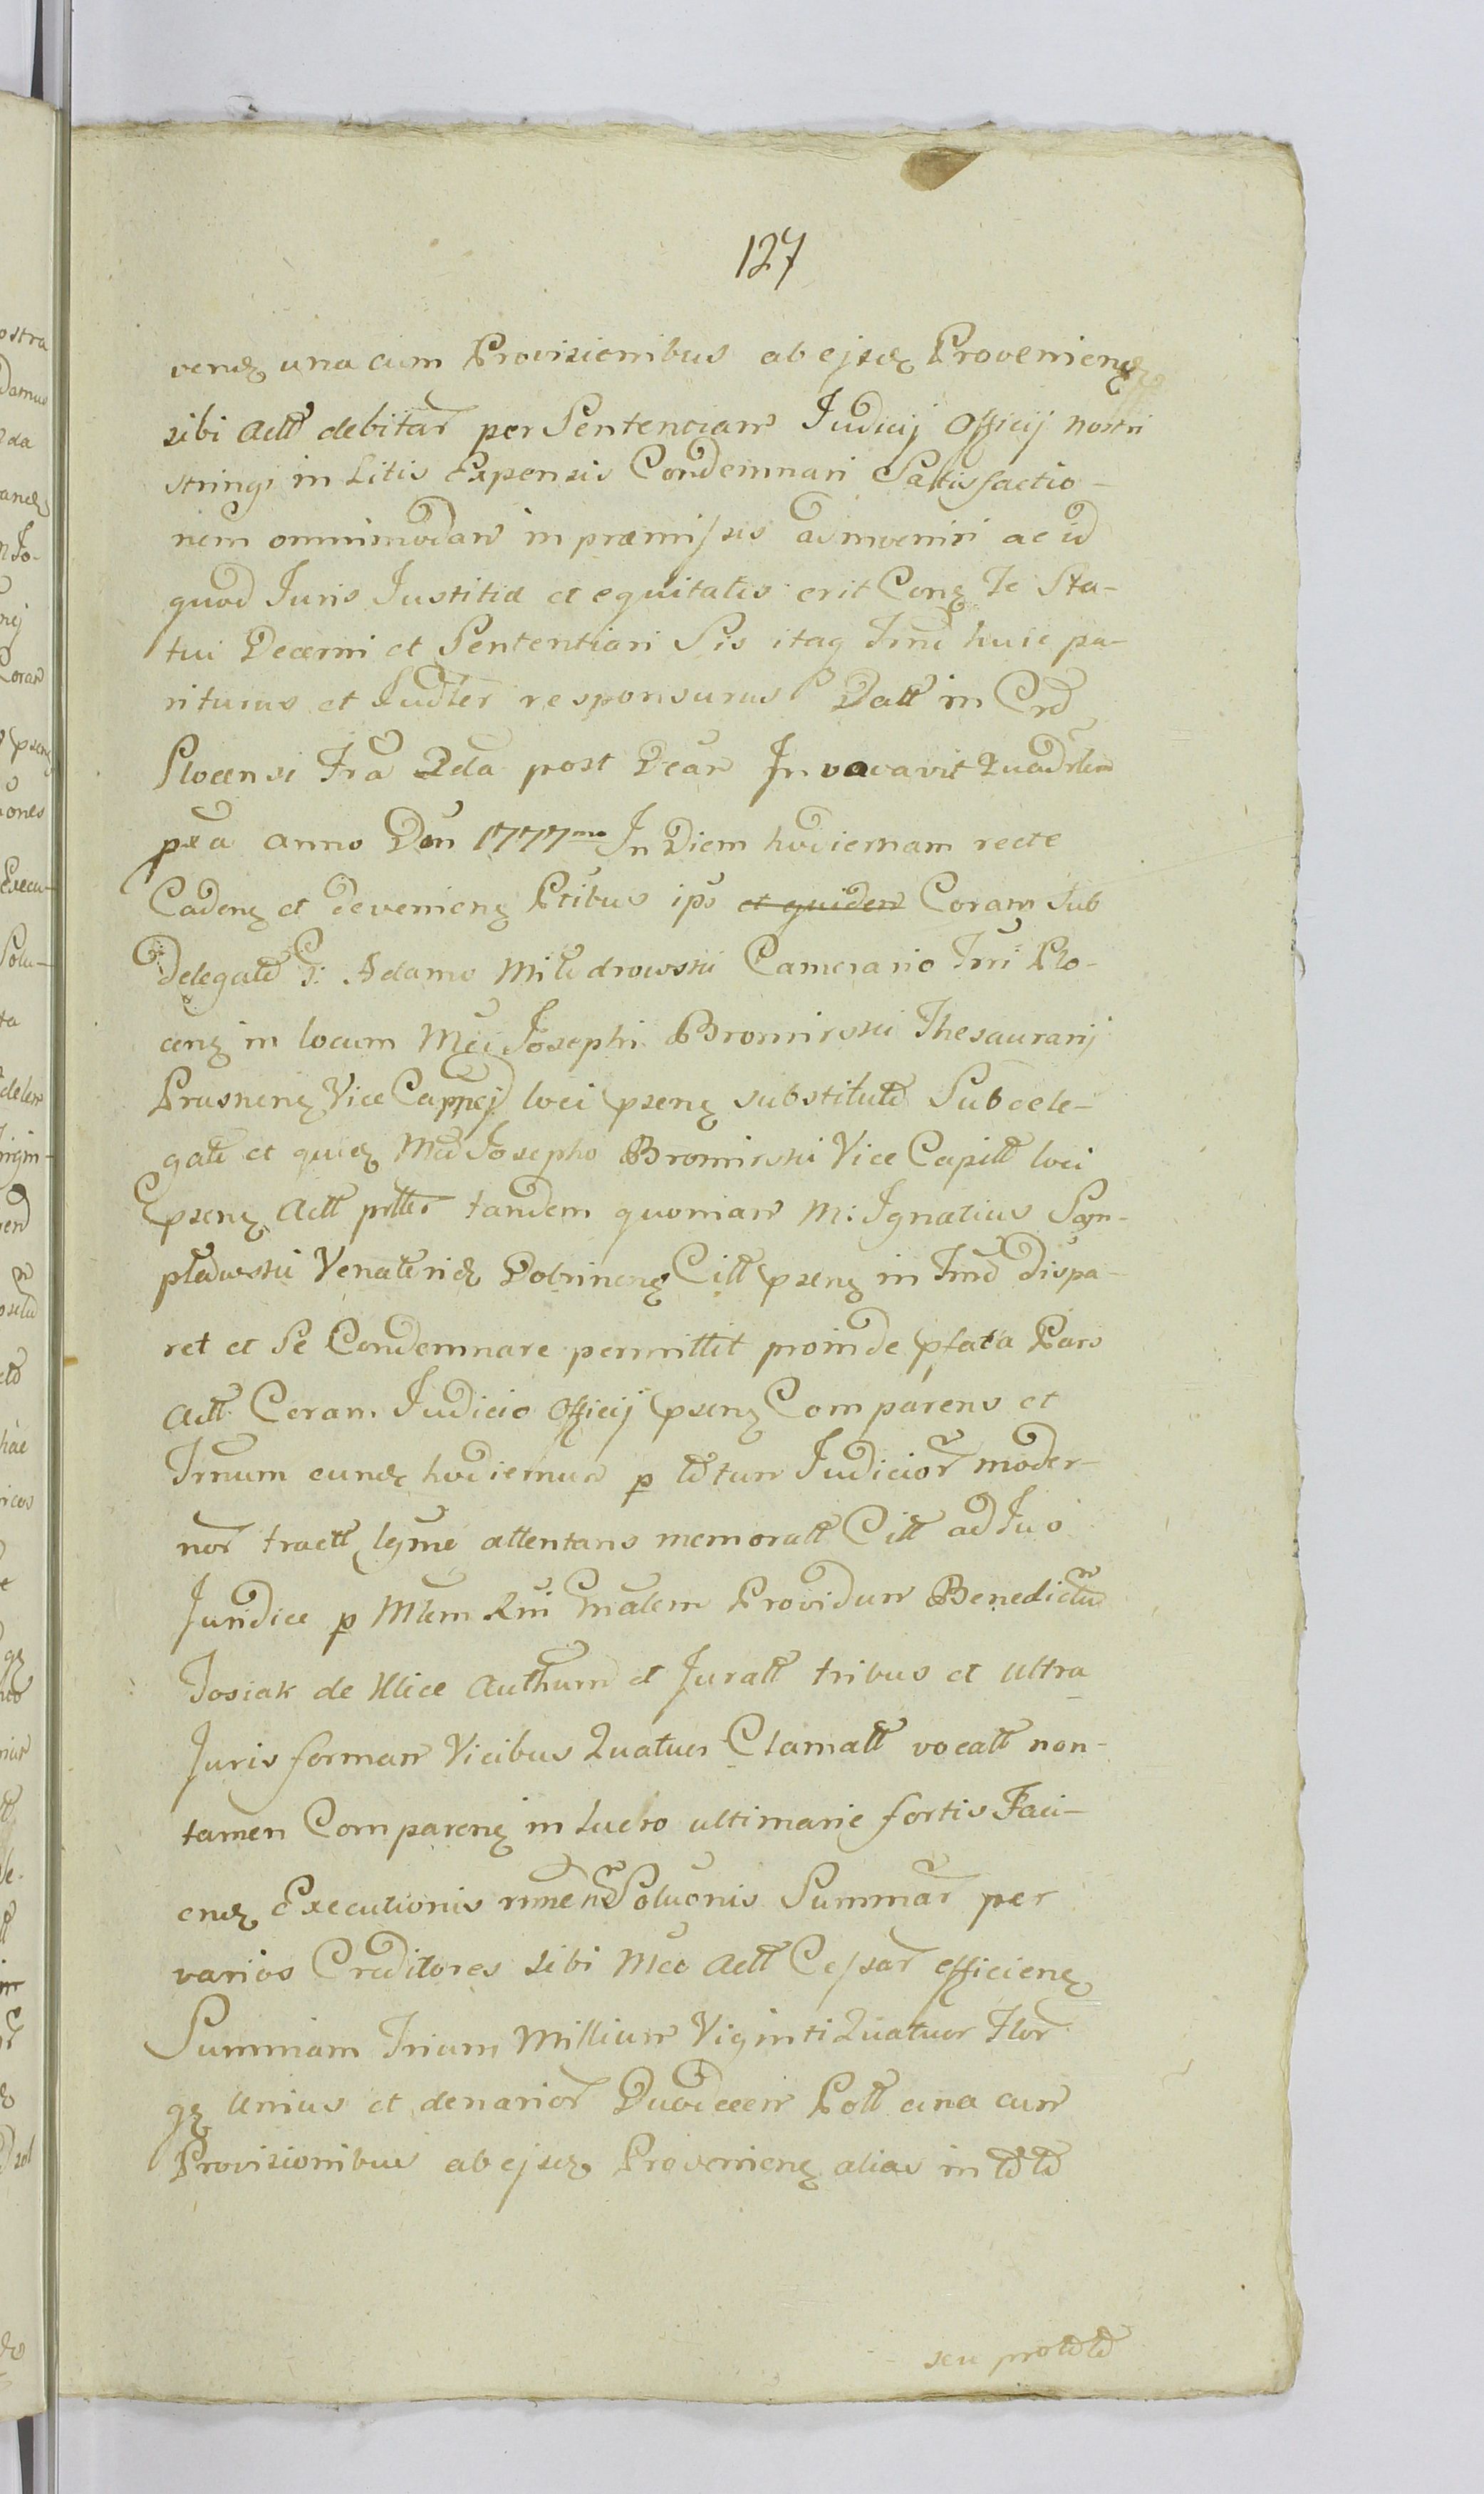 127
vend una cum Provisionibus ab ejsd Provenienz
sibi Actt debitar per Sentenciam Judicij Officij nostri
stringi in Litis Expensis Condemnari Satisfactio-
nem omnimodam in præmissis adinveniri ac id
quod Juris Justitiæ et equitatis erit Conz Te Sta-
tui Decerni et Sententiari Sis itaq Trmo huic pa-
riturus et Judler responsurus Datt in Crd
Plocensi Fra 2da post Dcam Invocavit Quadrlem
pxa anno Dni 1777mo In Diem hodiernam recte
Cadenz et devenienz Ptibus ips et quidem Coram Sub
Delegato G: Adamo Milodrowski Camerario Trri Plo-
cenz in locum Mci Josephi Bromirski Thesaurarij
Prasnenz Vice Cappnej loci psenz substituto Subdele-
gato et quid Mco Josepho Bromirski Vice Capitt loci
psenz Actt prltr tandem quoniam M: Ignatius Sam-
Venatorid Dobrinenz Citt psenz in Trmo dispa-
ret et Se Condemnare permittit proinde pfata Pars
Actt Coram Judicio Officij psenz Comparens et
Trnum eund hodiernum p Actum Judicior moder-
nor tractt lgme attentans memoratt Citt ad Jud
Juridice p Mlem Rni Gnalem Providum Benedictum
Josiak de Ulice Authum et Juratt tribus et ultra
Juris formam Vicibus Quatuor Clamatt vocatt non-
tamen Comparenz in lucro ultimarie fortis Faci-
end Executionis Solucnis Summar per
varios Creditores sibi Mco Actt Cessar efficienz
Summam Trium Millium Viginti Quatuor Flor
gz Unius et denarior Duodecem Poll una cum
Provisionibus ab ejsd Provenienz alias in toto
seu proto